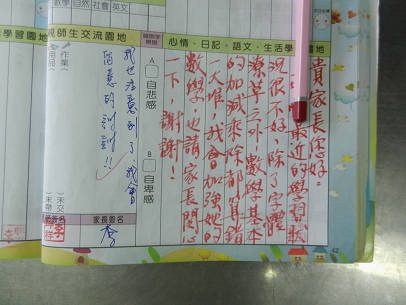 數學 自然 社會 英文
親師生交流園地
心情、日記、語文、生活學
園地
貴家長您好:
最近的學習狀
況很不好,除了字體
潦草之外,數學基本
的加減乘除都算錯
一大堆,我會加強她的
數學,也請家長關心
一下,謝謝!
A
自悲感
B
自卑感
我也注意到了,我會
作業
用品
未交
未帶
家長簽名
42